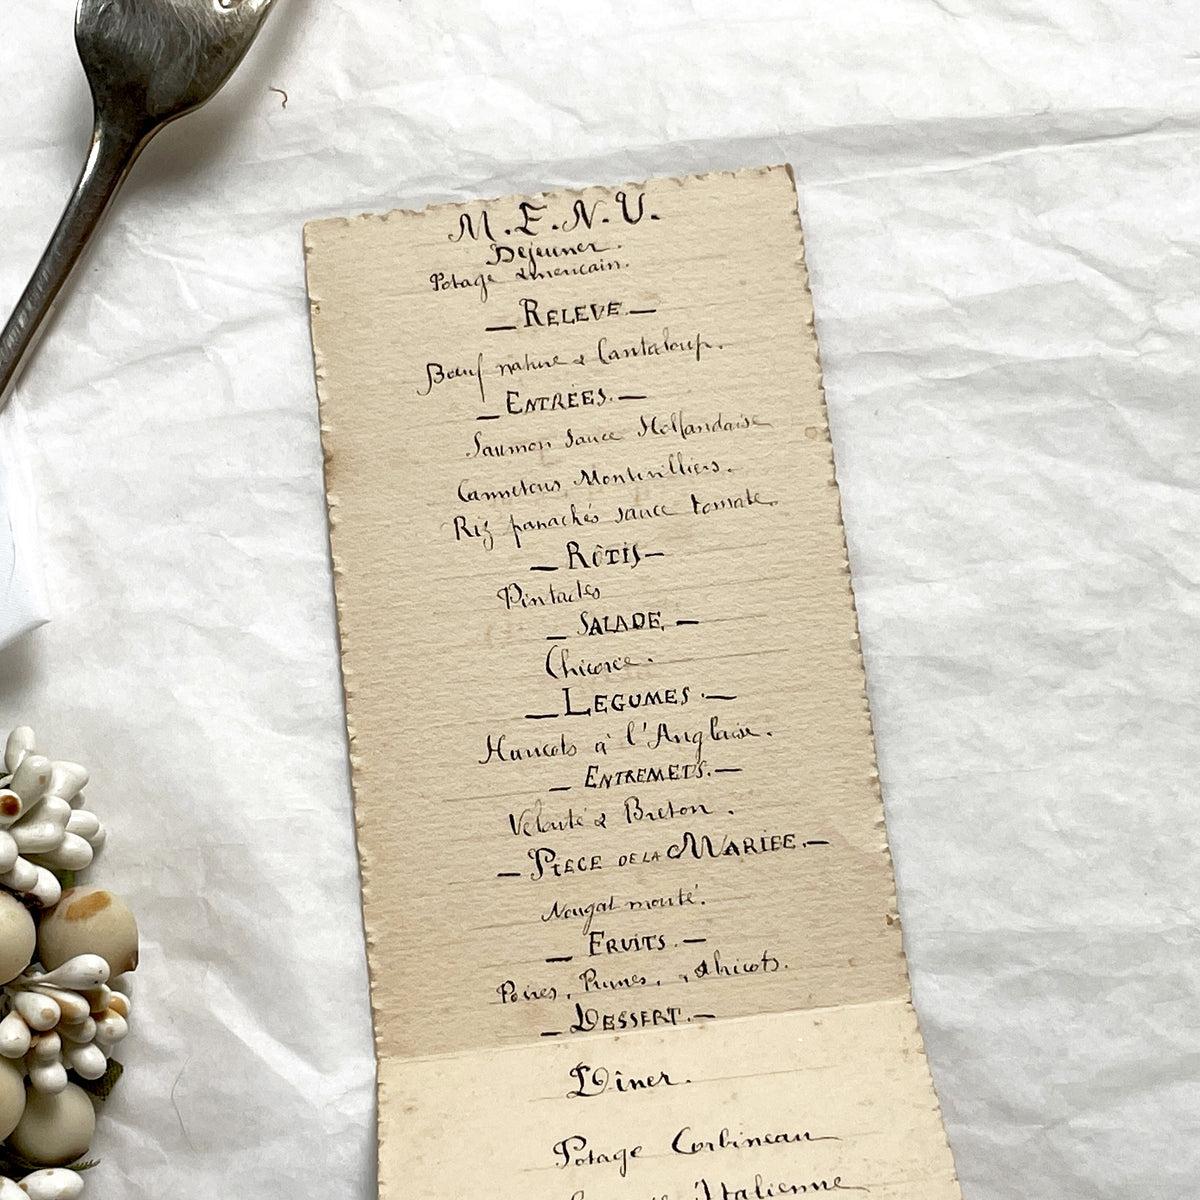 M.E.N.U.
Déjeuner.
Potage Américain.
— RELEVE —
Bœuf nature & Cantaloup.
— ENTRÉES. —
Saumon Sauce Hollandaise
Cannetons Montivilliers.
Riz panachés sauce tomate.
— RÔTIS —
Pintades
— SALADE. —
Chicorée.
— LEGUMES. —
Haricots à l'Anglaise.
— ENTREMETS. —
Velouté & Breton.
— PIECE DE LA MARIÉE. —
Nougat monté.
— FRUITS. —
Poires, Prunes, Abricots.
— DESSERT. —
Dîner.
Potage Corbineau
Italienne